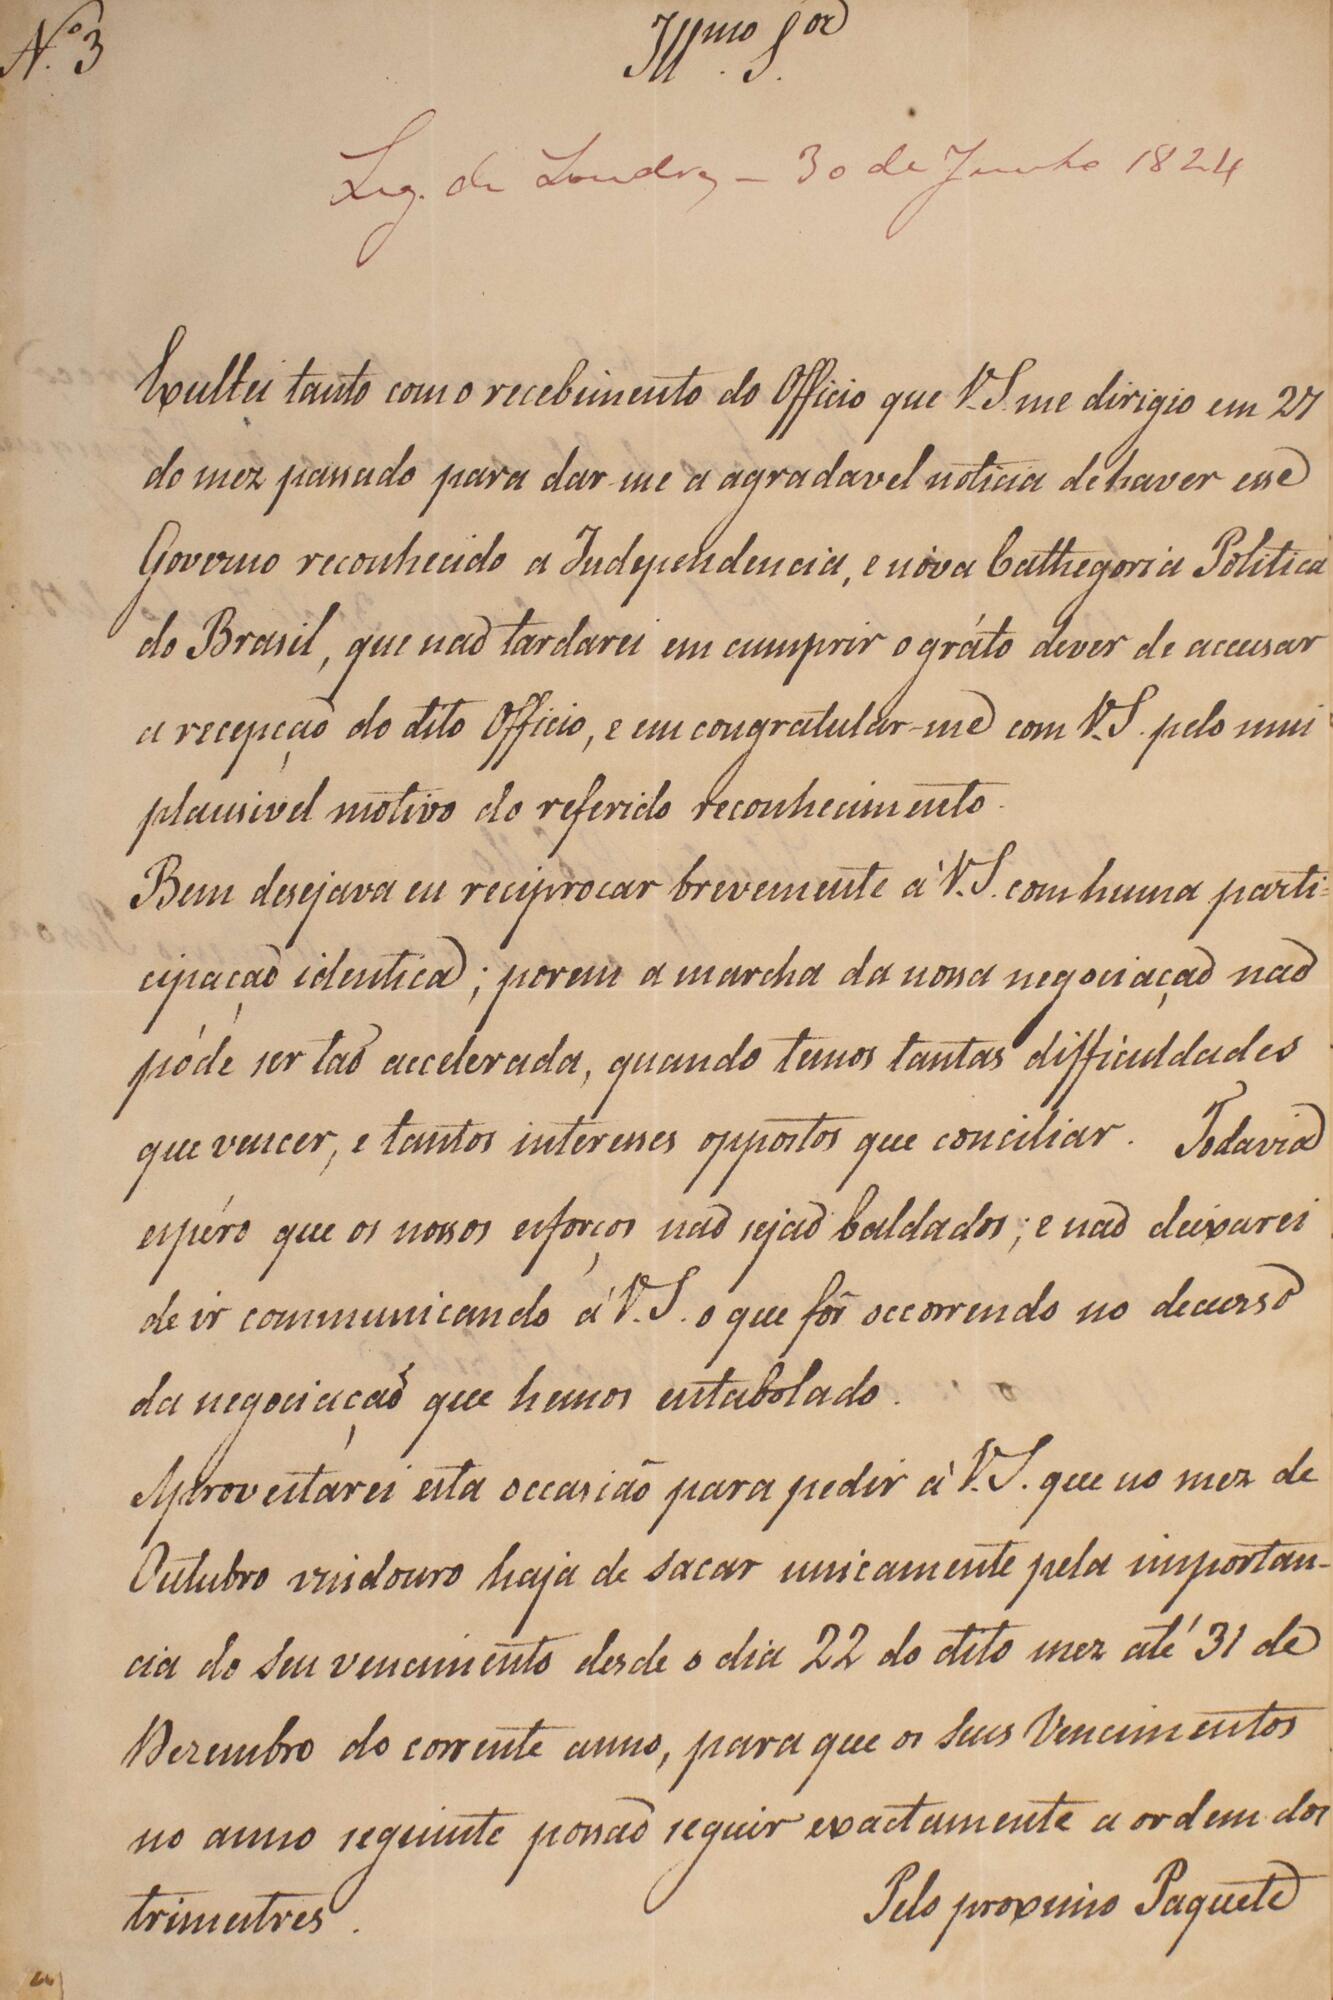 N.º 3
Ill.mo S.or
Leg. de Londres – 30 de Junho 1824
Exultei tanto com o recebimento do Officio que V.S. me dirigio em 27
do mez passado para dar-me a agradavel noticia de haver esse
Governo reconhecido a Independencia, e nóva Cathegoria Politica
do Brasil, que naõ tardarei em cumprir o gráto dever de accusar
a recepçaõ do dito Officio, e em congratular-me com V.S. pelo mui
plausivel motivo do referido reconhecimento.
Bem desejava eu reciprocar brevemente á V.S. com huma parti-
cipaçaõ identica; porem a marcha da nossa negociaçaõ naõ
póde ser taõ accelerada, quando temos tantas difficuldades
que vencer, e tantos interesses oppostos que conciliar. Todavia
espéro que os nossos esforços naõ sejaõ baldados; e naõ deixarei
de ir communicando á V.S. o que fôr occorrendo no decurso
da negociaçaõ que hemos entabolado.
Aproveitarei esta occasião para pedir á V.S. que no mez de
Outubro vindouro haja de sacar unicamente pela importan-
cia do seu vencimento desde o dia 22 do dito mez até 31 de
Dezembro do corrente anno, para que os seus Vencimentos
no anno seguinte possaõ seguir exactamente a ordem dos
trimestres. Pelo proximo Paquete